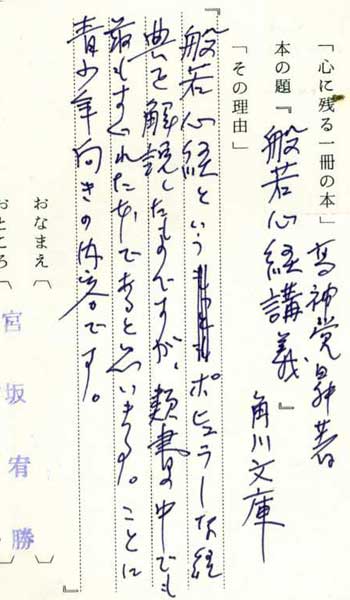 「心に残る一冊の本」
高神覚昇著
本の題『般若心経講義』
角川文庫
「その理由」
『般若心経というポピュラーな経
典を解説したものですが、類書の中でも
最もすぐれた本であると思います。ことに
青少年向きの内容です。
』
おなまえ〔宮坂宥勝〕
おところ〔